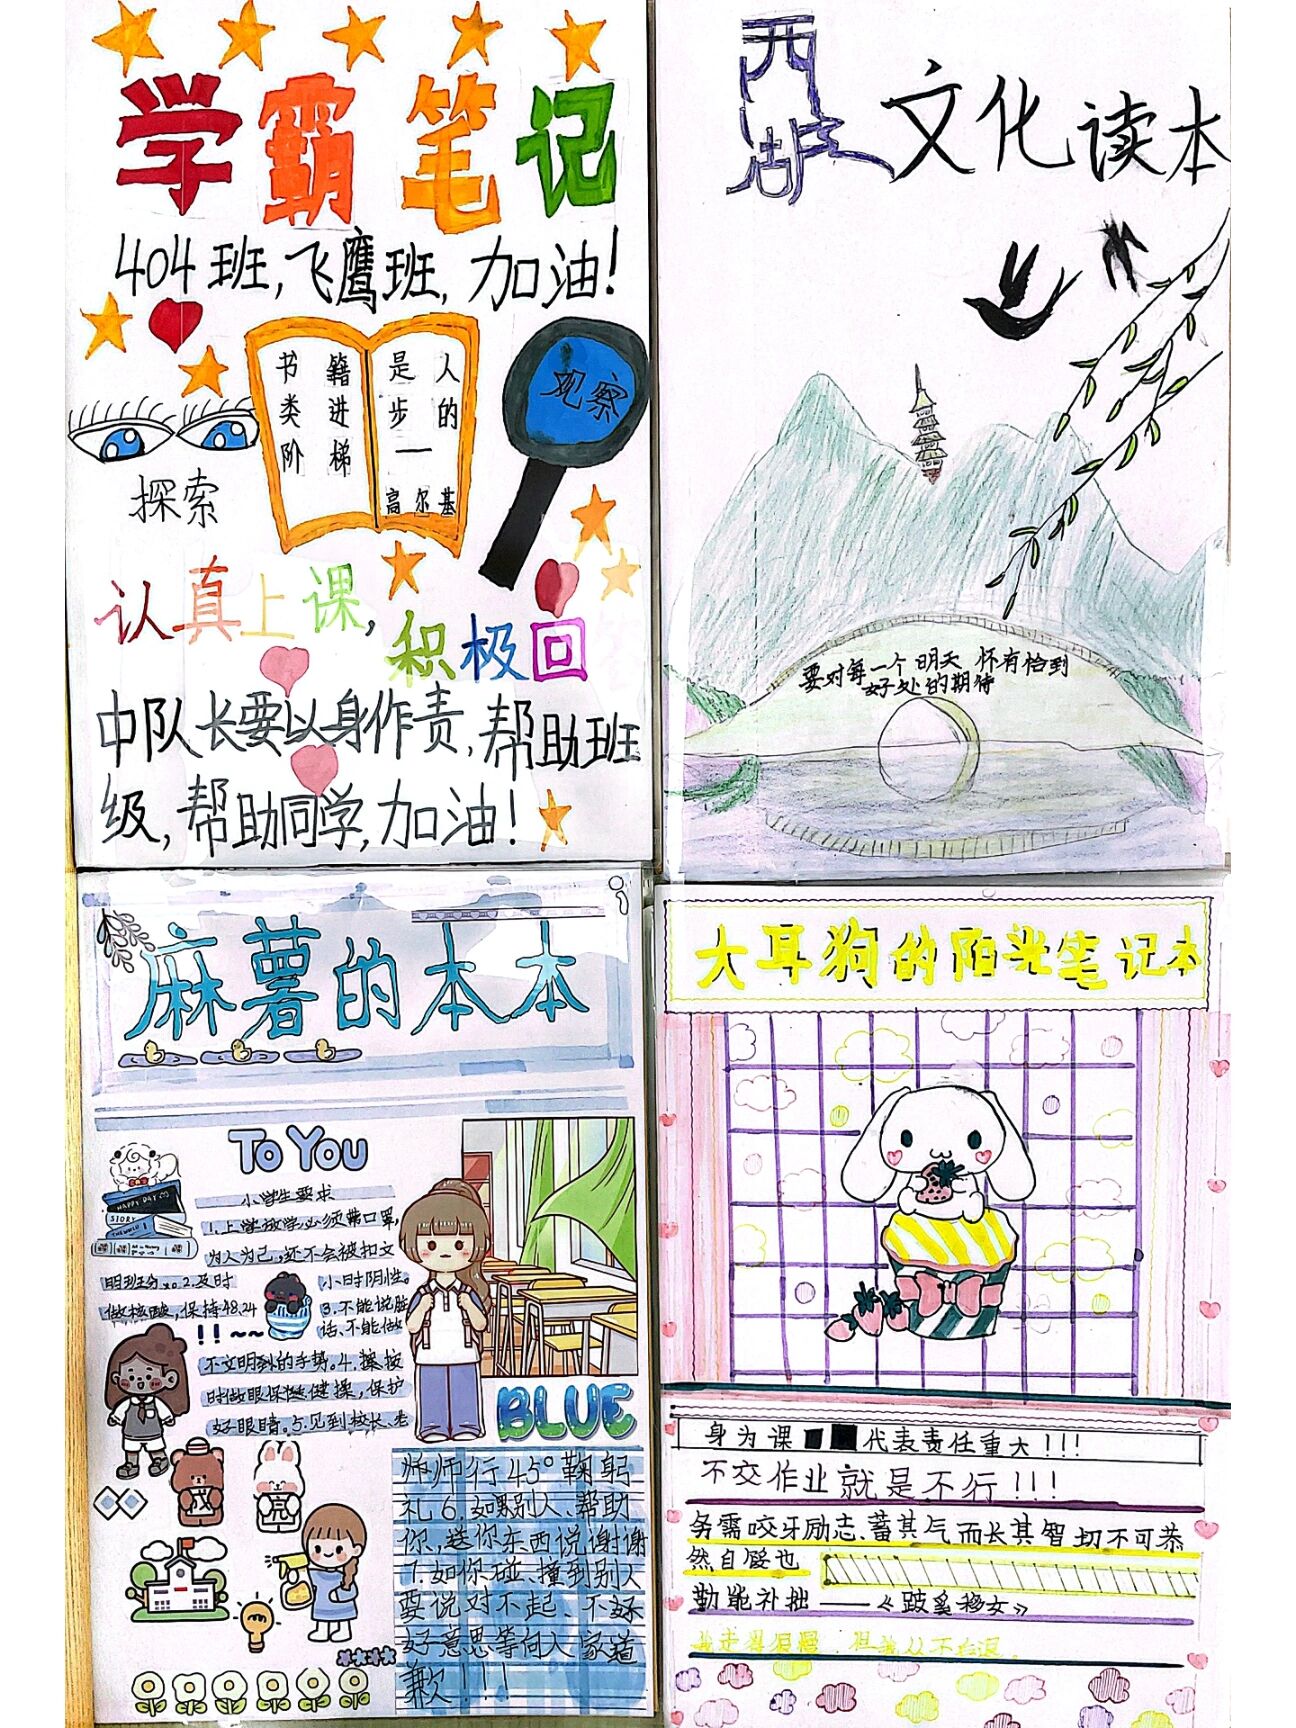 学霸笔记
404班,飞鹰班,加油!
书籍是人
类进步的
阶梯一
高尔基
观察
探索
认真上课,
积极回
中队长要以身作责,帮助班
级,帮助同学,加油!
西湖
文化读本
要对每一个明天怀有恰到
好处的期待
麻薯的本本
To YoU
HAPPY DAY
STORY
小学生要求
1.上学放学必须带口罩,
为人为己,还不会被扣文
明班分。2.及时
做核酸,保持48.24
小时阴性。
3.不能说脏
话、不能做
!!~~
不文明到的手势。4.按
时做眼保健操,保护
好眼睛。5.见到校长、老
BLUE
师师行45°鞠躬
礼6.如果别人、帮助
你,送你东西说谢谢
7.如你碰、撞到别人
要说对不起、不好
好意思等向人家道
歉!!!
成
亮
大耳狗的阳光笔记本
身为课代表责任重大!!!
不交作业就是不行!!!
务需咬牙励志、蓄其气而长其智切不可恭
然自馁也
勤能补拙——《跛奚移女》
我走得很慢,但我从不后退。